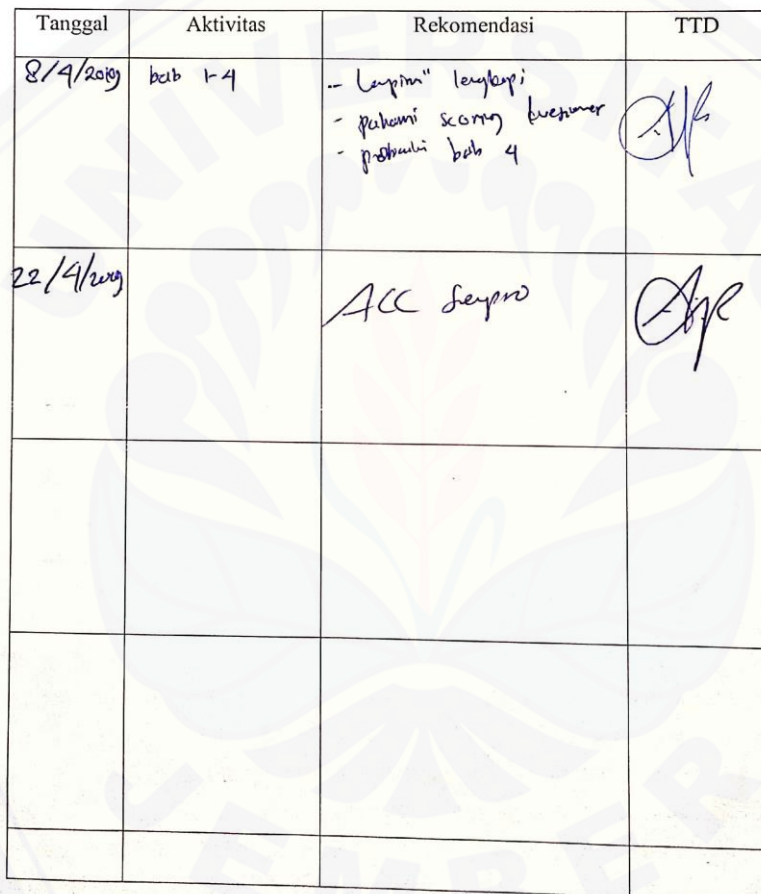 Tanggal Aktivitas Rekomendasi TTD
8/4/2019 bab 1-4 - Lampiran" lengkapi
- pahami scoring kuesioner
- perbaiki bab 4
22/4/2019 ACC Sempro
UNIVERSITAS
JEMBER